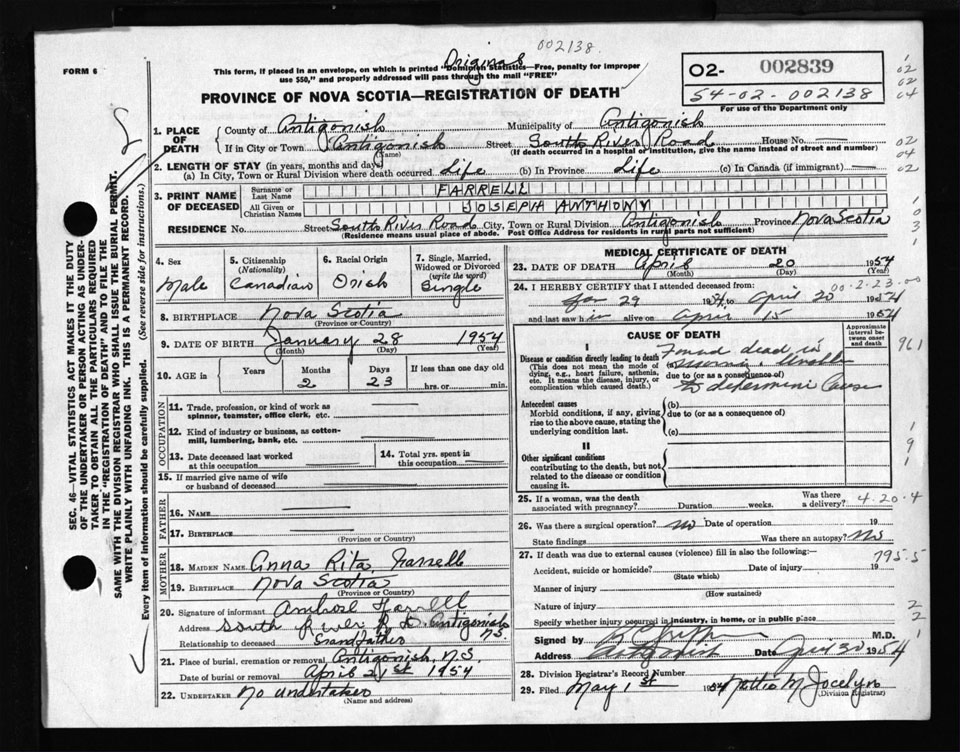 002138.
Original
FORM 6
This form, if placed in an envelope, on which is printed "Dominion Statistics—Free, penalty for improper
use $50," and properly addressed will pass through the mail "FREE"
O2- 002839
54-02-002138
For use of the Department only
PROVINCE OF NOVA SCOTIA—REGISTRATION OF DEATH
1. PLACE OF DEATH County of Antigonish Municipality of Antigonish
If in City or Town Antigonish (Name) Street South River Road House No.
(If death occurred in a hospital or institution, give the name instead of street and number)
2. LENGTH OF STAY (in years, months and days)
(a) In City, Town or Rural Division where death occurred Life (b) In Province Life (c) In Canada (if immigrant)
3. PRINT NAME OF DECEASED Surname or Last Name FARRELL
All Given or Christian Names JOSEPH ANTHONY
RESIDENCE No. Street South River Road City, Town or Rural Division Antigonish Province Nova Scotia
(Residence means usual place of abode. Post Office Address for residents in rural parts not sufficient)
4. Sex Male
5. Citizenship (Nationality) Canadian
6. Racial Origin Irish
7. Single, Married, Widowed or Divorced (write the word) Single
8. BIRTHPLACE Nova Scotia
(Province or Country)
9. DATE OF BIRTH January 28 1954
(Month) (Day) (Year)
10. AGE in Years Months 2 Days 23 If less than one day old hrs. or min.
OCCUPATION
11. Trade, profession, or kind of work as spinner, teamster, office clerk, etc.
12. Kind of industry or business, as cotton-mill, lumbering, bank, etc.
13. Date deceased last worked at this occupation
14. Total yrs. spent in this occupation
15. If married give name of wife or husband of deceased
FATHER
16. NAME
17. BIRTHPLACE
(Province or Country)
MOTHER
18. MAIDEN NAME Anna Rita Farrell
19. BIRTHPLACE Nova Scotia
(Province or Country)
20. Signature of informant Ambrose Farrell
Address South River Rd. Antigonish N.S.
Relationship to deceased Grandfather
21. Place of burial, cremation or removal Antigonish, N.S.
Date of burial or removal April 21st 1954
22. UNDERTAKER No undertaker
(Name and address)
MEDICAL CERTIFICATE OF DEATH
23. DATE OF DEATH April 20 1954
(Month) (Day) (Year)
24. I HEREBY CERTIFY that I attended deceased from 00-2-23-00
Jan 29 1954 to April 20 1954
and last saw h im alive on April 15 1954
CAUSE OF DEATH
Approximate interval between onset and death
961
I
Disease or condition directly leading to death
(This does not mean the mode of dying, e.g., heart failure, asthenia, etc. It means the disease, injury, or complication which caused death.)
(a) Found dead in
morning. Unable
due to (or as a consequence of)
to determine cause
Antecedent causes
Morbid conditions, if any, giving rise to the above cause, stating the underlying condition last.
(b)
due to (or as a consequence of)
(c)
II
Other significant conditions
contributing to the death, but not related to the disease or condition causing it.
25. If a woman, was the death associated with pregnancy? Duration weeks. Was there a delivery? 4.20.4
26. Was there a surgical operation? No Date of operation 19
State findings Was there an autopsy? No
27. If death was due to external causes (violence) fill in also the following:— 795.5
Accident, suicide or homicide? (State which) Date of injury 19
Manner of injury
(How sustained)
Nature of injury
Specify whether injury occurred in industry, in home, or in public place
Signed by M.D.
Address Antigonish Date 30 1954
28. Division Registrar's Record Number
29. Filed May 1st 1954 Mattie M Jocelyn
(Division Registrar)
SEC. 46—VITAL STATISTICS ACT MAKES IT THE DUTY
OF THE UNDERTAKER OR PERSON ACTING AS UNDER-
TAKER TO OBTAIN ALL THE PARTICULARS REQUIRED
IN THE "REGISTRATION OF DEATH" AND TO FILE THE
SAME WITH THE DIVISION REGISTRAR WHO SHALL ISSUE THE BURIAL PERMIT.
WRITE PLAINLY WITH UNFADING INK. THIS IS A PERMANENT RECORD.
Every item of information should be carefully supplied. (See reverse side for instructions.)